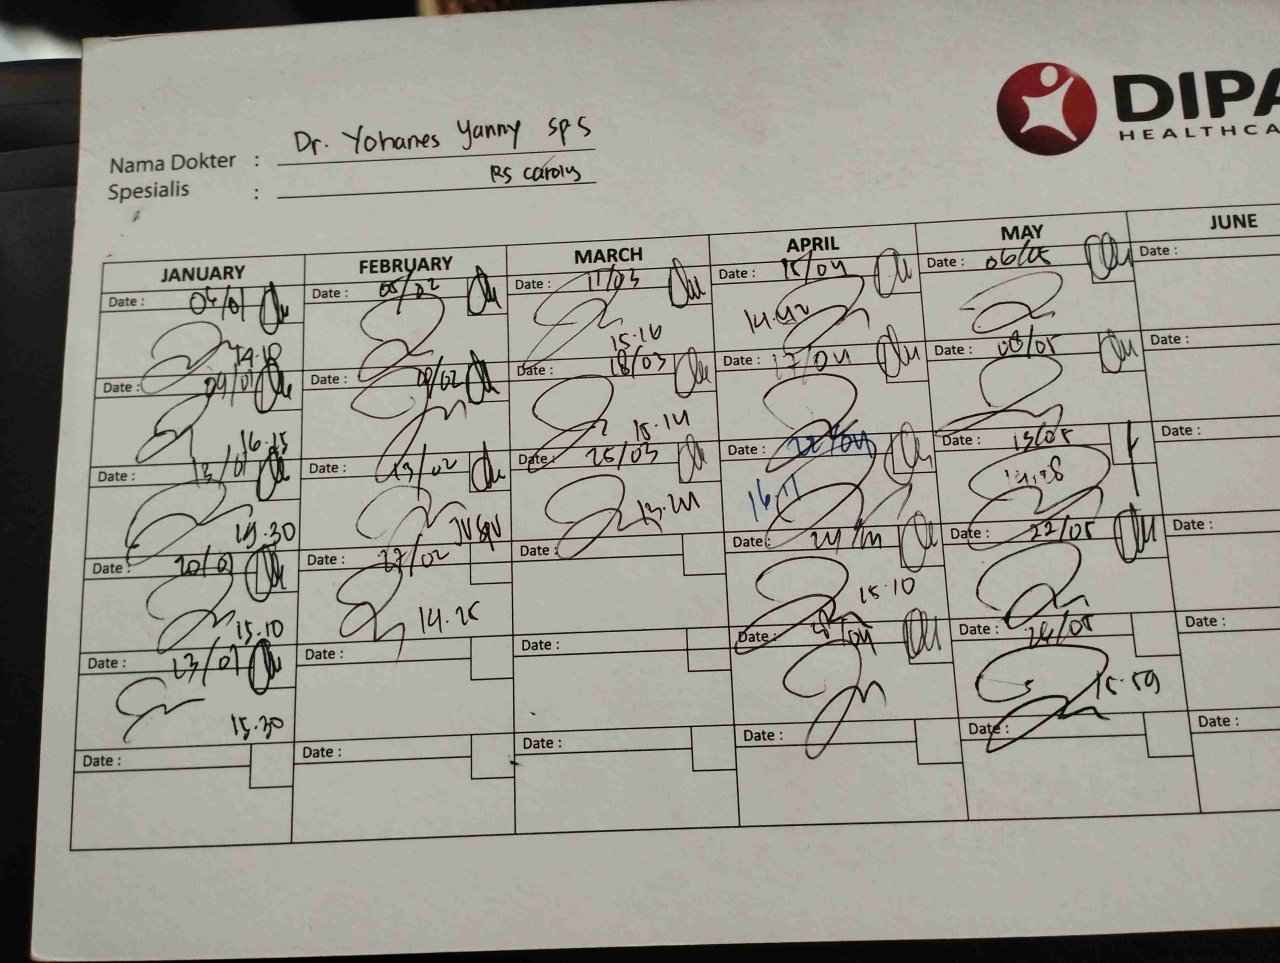 DIPA
HEALTHCA
Nama Dokter : Dr. Yohanes Yanny Sp S
Spesialis : RS Carolus
JANUARY FEBRUARY MARCH APRIL MAY JUNE
Date : 06/01 Date : 05/02 Date : 11/03 Date : 15/04 Date : 06/05 Date :
14.10 15.16 14.42
Date : 09/01 Date : 09/02 Date : 18/03 Date : 17/04 Date : 08/05 Date :
16.15 15.14
Date : 13/01 Date : 13/02 Date : 25/03 Date : 22/04 Date : 15/05 Date :
19.30 16.11
Date : 20/01 Date : 27/02 Date : Date : Date : 22/05 Date :
15.10 14.25 15.10
Date : 23/01 Date : Date : Date : Date : 26/05 Date :
15.30 15.59
Date : Date : Date : Date : Date : Date :